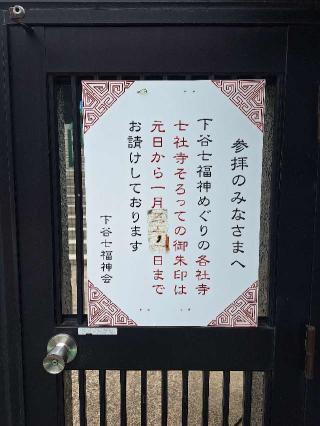 参拝のみなさまへ
下谷七福神めぐりの各社寺
七社寺そろっての御朱印は
元日から一月 日まで
お請けしております
下谷七福神会